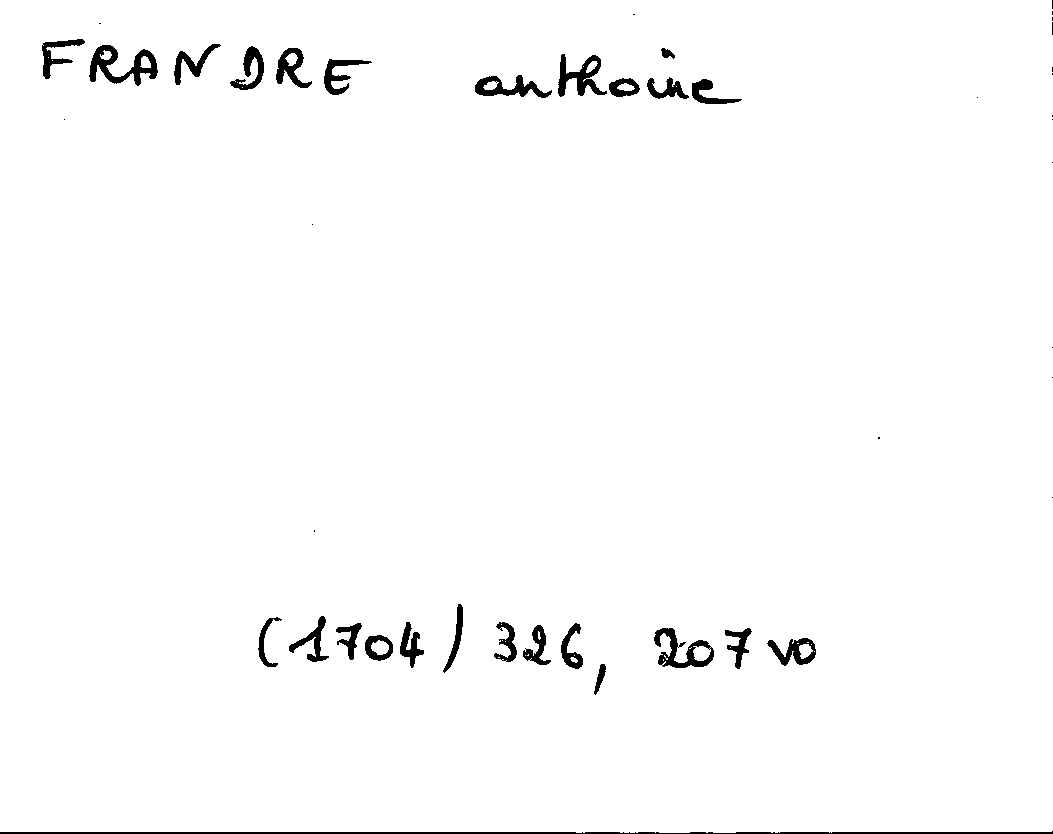 FRANDRE anthoine
(1704) 326, 207 vo